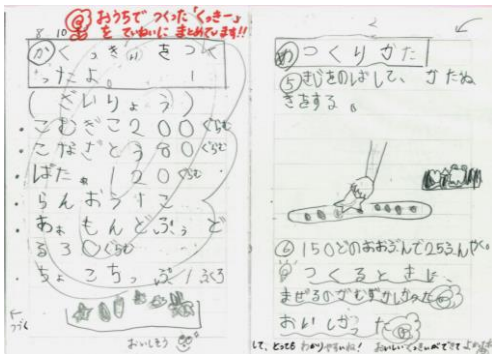 おうちで つくった「くっきー」
を ていねいに まとめています!!
8 10
か くっきいをつく
ったよ。 1
(ざいりょう)
・こむぎこ200ぐらむ
・こなざとう80ぐらむ
・ばたあ120ぐらむ
・らんおうすこ
・あぁもんどぷぅど
る30ぐらむ
・ちょこちっぷ1ふくろ
つづく
おいしそう
2
め つくりかた
⑤きじをのばして、かたぬ
きをする。
⑥150どのおおぶんで25ふんやく。
つくるときに、
まぜるのがむずかしかった
おいしかった
して、とっても わかりやすいね! おいしいくっきいができて よかったね